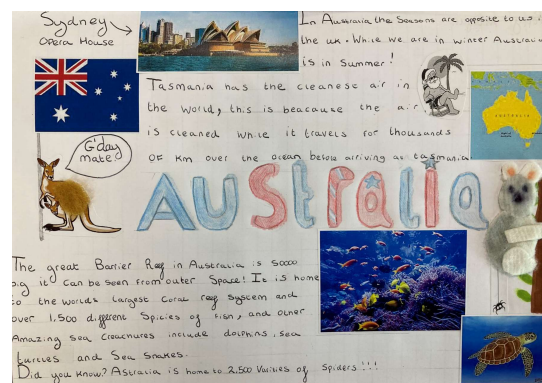 Sydney
Opera House
In Australia the Seasons are opposite to us in
the uk. While we are in winter Australia
is in Summer!
Tasmania has the cleanese air in
the world, this is beacause the air
is cleaned while it travels for thousands
of km over the ocean before arriving at tasmania
G'day
mate!
AUSTRALIA
Australia
The great Barrier Reef in Australia is soooo
big it can be seen from outer Space! It is home
to the worlds largest Coral reef System and
over 1,500 different Spicies of fish, and other
Amazing sea creachures include dolphins, sea
turtles and Sea Snakes.
Did you know? Astralia is home to 2,500 Varities of Spiders!!!